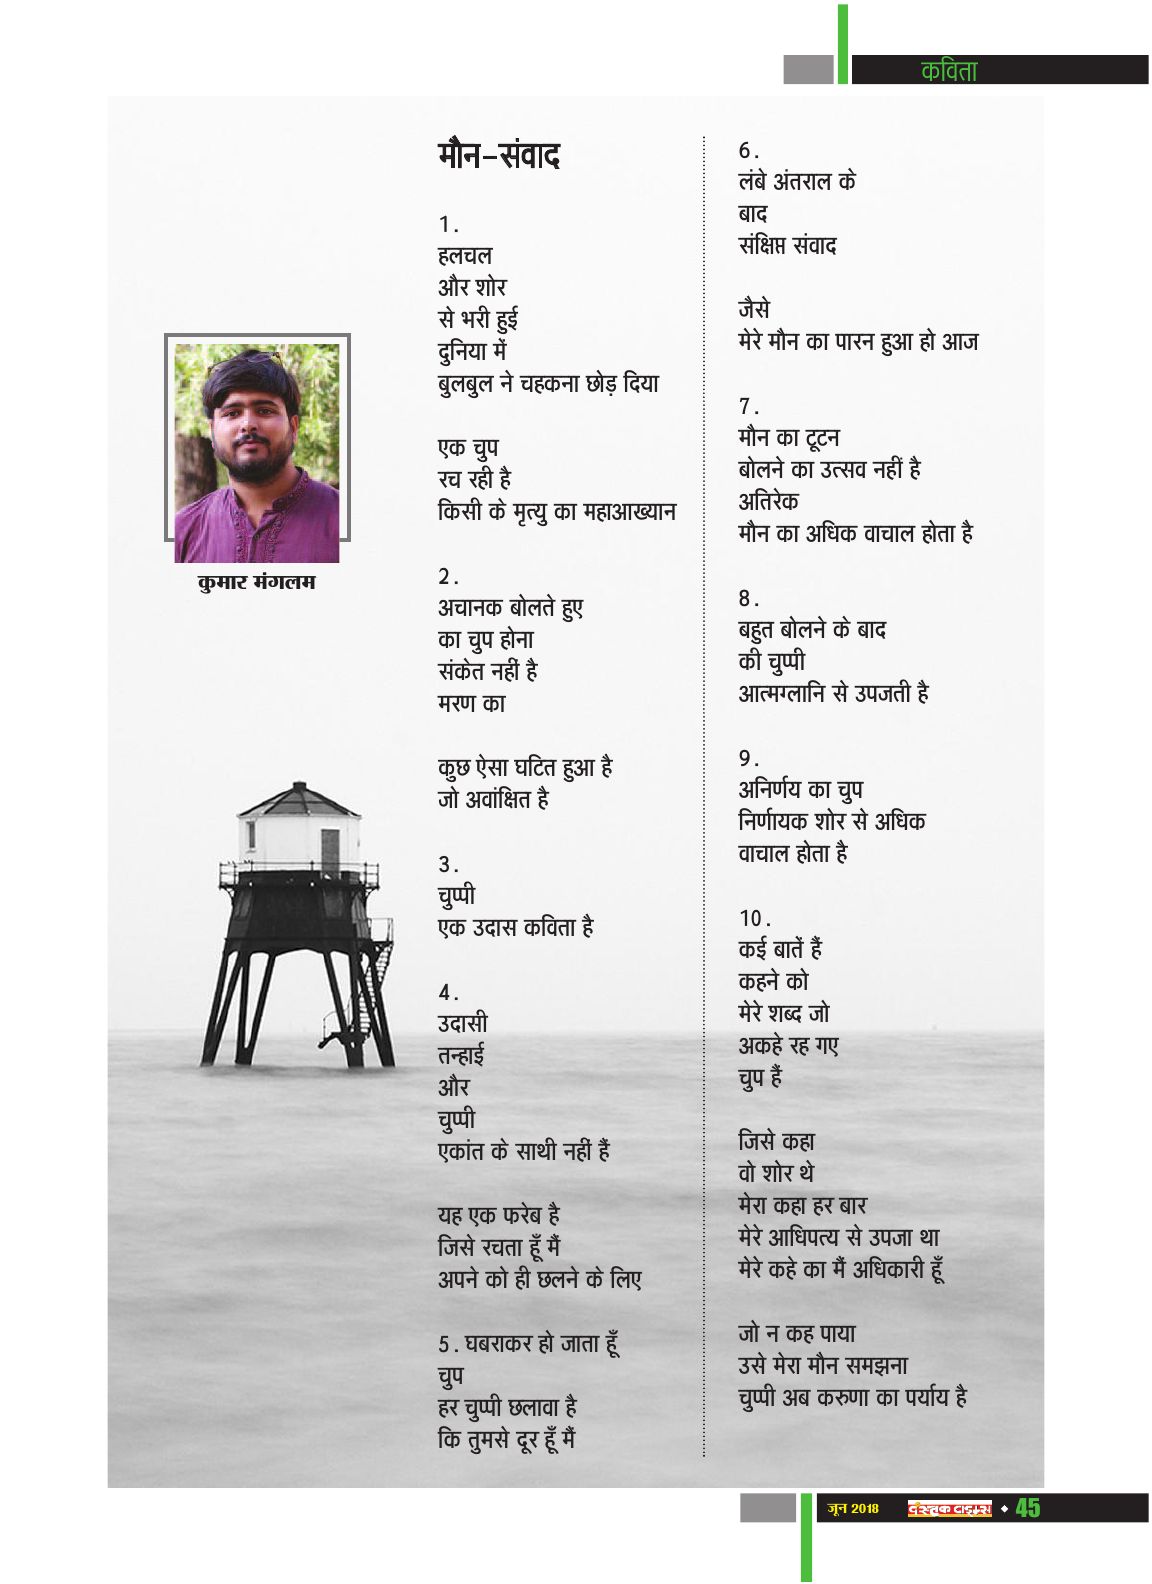 कविता
मौन-संवाद
1.
हलचल
और शोर
से भरी हुई
दुनिया में
बुलबुल ने चहकना छोड़ दिया
एक चुप
रच रही है
किसी के मृत्यु का महाआख्यान
2.
अचानक बोलते हुए
का चुप होना
संकेत नहीं है
मरण का
कुछ ऐसा घटित हुआ है
जो अवांक्षित है
3.
चुप्पी
एक उदास कविता है
4.
उदासी
तन्हाई
और
चुप्पी
एकांत के साथी नहीं हैं
यह एक फरेब है
जिसे रचता हूँ मैं
अपने को ही छलने के लिए
5. घबराकर हो जाता हूँ
चुप
हर चुप्पी छलावा है
कि तुमसे दूर हूँ मैं
6.
लंबे अंतराल के
बाद
संक्षिप्त संवाद
जैसे
मेरे मौन का पारन हुआ हो आज
7.
मौन का टूटन
बोलने का उत्सव नहीं है
अतिरेक
मौन का अधिक वाचाल होता है
8.
बहुत बोलने के बाद
की चुप्पी
आत्मग्लानि से उपजती है
9.
अनिर्णय का चुप
निर्णायक शोर से अधिक
वाचाल होता है
10.
कई बातें हैं
कहने को
मेरे शब्द जो
अकहे रह गए
चुप हैं
जिसे कहा
वो शोर थे
मेरा कहा हर बार
मेरे आधिपत्य से उपजा था
मेरे कहे का मैं अधिकारी हूँ
जो न कह पाया
उसे मेरा मौन समझना
चुप्पी अब करुणा का पर्याय है
कुमार मंगलम
जून 2018 दस्तक टाइम्स 45